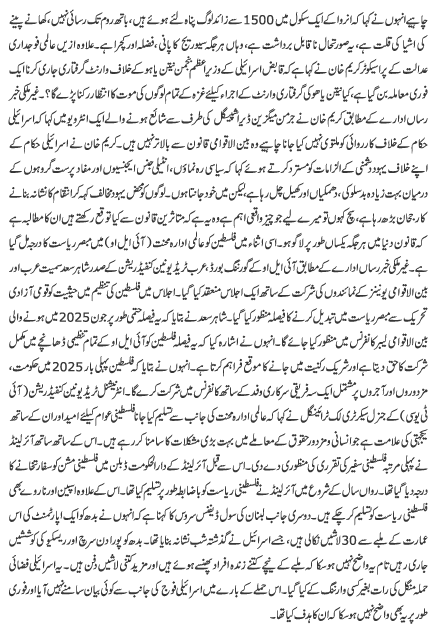 چاہیے انہوں نے کہا کہ انروا کے ایک سکول میں 1500 سے زائد لوگ پناہ لئے ہوئے ہیں، باتھ روم تک رسائی نہیں، کھانے پینے
کی اشیا کی قلت ہے، یہ صورتحال ناقابل برداشت ہے، وہاں ہر جگہ سیوریج کا پانی، فضلہ اور کچرا ہے۔ علاوہ ازیں عالمی فوجداری
عدالت کے پراسیکیوٹر کریم خان نے کہا ہے کہ قابض اسرائیلی کے وزیراعظم بنجمن نیتن یاہو کے خلاف وارنٹ گرفتاری جاری کرنا ایک
فوری معاملہ بن گیا ہے، کیا نیتن یاھو کی گرفتاری وارنٹ کے اجراء کیلئے غزہ کے تمام لوگوں کی موت کا انتظار کرنا پڑے گا؟۔ غیر ملکی خبر
رساں ادارے کے مطابق کریم خان نے جرمن میگزین ڈیراشپیگل کی طرف سے شائع ہونے والے ایک انٹرویو میں کہا کہ اسرائیلی
حکام کے خلاف کارروائی کو ملتوی نہیں کیا جانا چاہیے وہ بین الاقوامی قانون سے بالاتر نہیں ہیں۔ کریم خان نے اسرائیلی حکام کے
اپنے خلاف یہود دشمنی کے الزامات کو مسترد کرتے ہوئے کہا کہ سیاسی رہ نماؤں، انٹیلی جنس ایجنسیوں اور مفاد پرست گروہوں کے
درمیان بہت زیادہ بدسلوکی، دھمکیاں اور کھیل چل رہا ہے، لیکن میں خود جانتا ہوں۔ لوگوں کو محض یہود مخالف کہہ کر انتقام کا نشانہ بنانے
کا رجحان بڑھ رہا ہے، سچ کہوں تو میرے لیے جو چیز واقعی اہم ہے وہ یہ ہے کہ متاثرین قانون سے کیا توقع رکھتے ہیں ان کا مطالبہ ہے
کہ قانون دنیا میں ہر جگہ یکساں طور پر لاگو ہو۔ اسی اثناء میں فلسطین کو عالمی ادارہ محنت (آئی ایل او) میں مبصر ریاست کا درجہ مل گیا
ہے۔ غیر ملکی خبر رساں ادارے کے مطابق آئی ایل او کے گورننگ بورڈ، عرب ٹریڈ یونین کنفیڈریشن کے صدر شاہر سعد سمیت عرب اور
بین الاقوامی یونینز کے نمائندوں کی شرکت کے ساتھ ایک اجلاس منعقد کیا گیا۔ اجلاس میں فلسطین کی تنظیم میں حیثیت کو قومی آزادی
تحریک سے مبصر ریاست میں تبدیل کرنے کا فیصلہ منظور کیا گیا۔ شاہر سعد نے بتایا کہ یہ فیصلہ حتمی طور پر جون 2025 میں ہونے والی
بین الاقوامی لیبر کانفرنس میں منظور کیا جائے گا۔ انہوں نے اشارہ کیا کہ یہ فیصلہ فلسطین کو آئی ایل او کے تمام تنظیمی ڈھانچے میں مکمل
شرکت کا حق دیتا ہے اور شریک رکنیت میں جانے کا موقع فراہم کرتا ہے۔ انہوں نے بتایا کہ فلسطین پہلی بار 2025 میں حکومت،
مزدوروں اور آجروں پر مشتمل ایک سہ فریقی سرکاری وفد کے ساتھ کانفرنس میں شرکت کرے گا۔ انٹرنیشنل ٹریڈ یونین کنفیڈریشن (آئی
ٹی یو سی) کے جنرل سیکرٹری لک ٹرائینگل نے کہا کہ عالمی ادارہ محنت کی جانب سے تسلیم کیا جانا فلسطینی عوام کیلئے امید اور ان کے ساتھ
یکجہتی کی علامت ہے جو انسانی و مزدور حقوق کے معاملے میں بہت بڑی مشکلات کا سامنا کر رہے ہیں۔ اس کے ساتھ ساتھ آئرلینڈ
نے پہلی مرتبہ فلسطینی سفیر کی تقرری کی منظوری دے دی۔ اس سے قبل آئرلینڈ کے دارالحکومت ڈبلن میں فلسطینی مشن کو سفارتخانے کا
درجہ دیا گیا تھا۔ رواں سال کے شروع میں آئرلینڈ نے فلسطینی ریاست کو باضابطہ طور پر تسلیم کیا تھا۔ اس کے علاوہ اسپین اور ناروے بھی
فلسطینی ریاست کو تسلیم کر چکے ہیں۔ دوسری جانب لبنان کی سول ڈیفنس سروس کا کہنا ہے کہ انہوں نے بدھ کو ایک اپارٹمنٹ کی اس
عمارت کے ملبے سے 30 لاشیں نکالی ہیں، جسے اسرائیل نے گذشتہ شب نشانہ بنایا تھا۔ بدھ کو پورا دن سرچ اور ریسکیو کی کوششیں
جاری رہیں تاہم یہ واضح نہیں ہوسکا کہ ملبے کے نیچے کتنے زندہ افراد پھنسے ہوئے ہیں اور مزید کتنی لاشیں دفن ہیں۔ یہ اسرائیلی فضائی
حملہ منگل کی رات بغیر کسی وارننگ کے کیا گیا۔ اس حملے کے بارے میں اسرائیلی فوج کی جانب سے کوئی بیان سامنے نہیں آیا اور فوری
طور پر یہ بھی واضح نہیں ہوسکا کہ ان کا ہدف کیا تھا۔